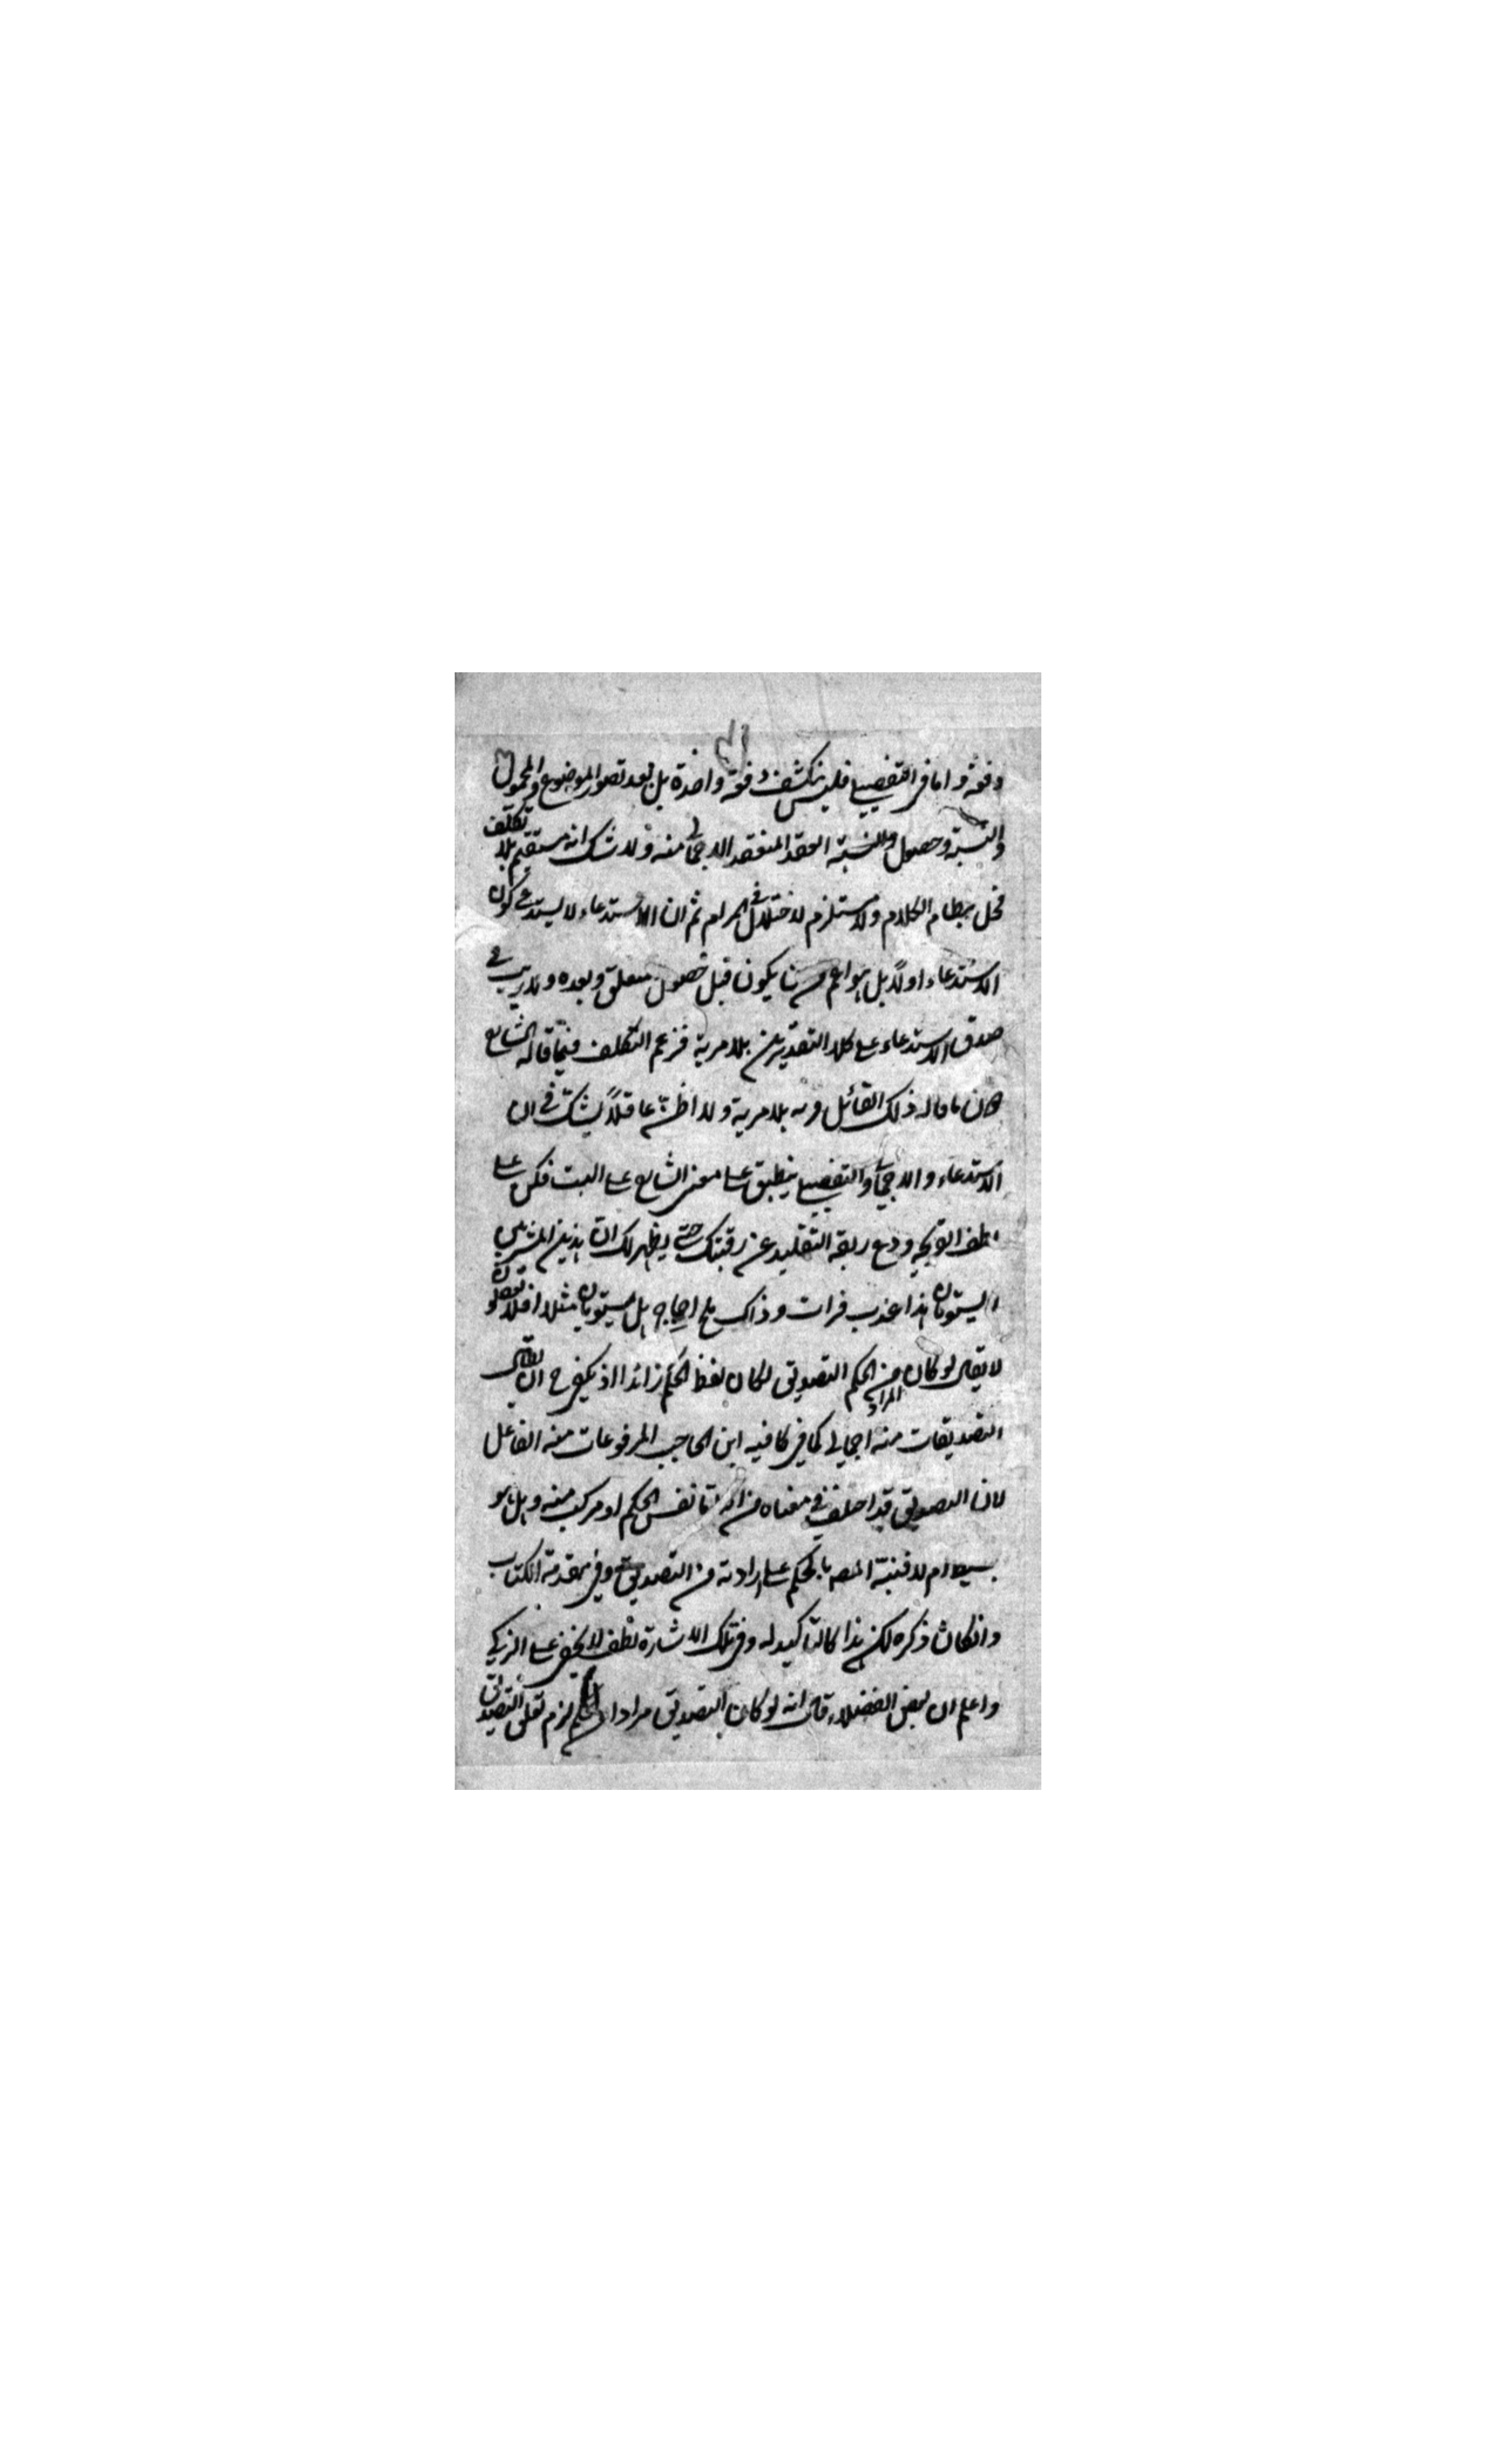 دفعة واما في التفصيلي فليس ينكشف دفعة واحدة بل بعد تصور الموضوع والمحمول
والنسبة وحصول النسبة العقد المنعقد الاجمالي منه ولا شك انه مستقيم بلا تكلف
مخل بنظام الكلام ولا مستلزم لاختلال في المرام ثم ان الاستدعاء لا يستدعي كون
الاستدعاء اولاً بل هو اعم من ان يكون قبل حصول متعلق وبعده ولا ريب في
صدق الاستدعاء على كلا التقديرين بلا مرية فزعم التكلف فيما قاله الشايع
ما قاله ذلك القائل بلا مرية ولا اظن عاقلاً يشك في ان
الاستدعاء والاجمالي والتفصيلي ينطبق على معنى الشايع على البت فكن على
لطف التوجيه ودع ربقة التقليد عن رقبتك حتى يظهر لك ان هذين المشربين
ايستويان هذا عذب فرات وذاك ملح اجاج هل يستويان مثلا افلا تعقلون
لا يقال لو كان المراد من الحكم التصديق لكان لفظ الحكم زائدا اذ يكفي ح ان يقال
التصديقات منه اجمالي كما في كافية ابن الحاجب المرفوعات منه الفاعل
لان التصديق قد اختلف في معناه من انه اما نفس الحكم او مركب منه وهل هو
بسيط ام لا فنبه المصـ بالحكم على ارادته من التصديق وفي مقدمة الكتاب
وان كان ذكره لكن هذا كالتاكيد له وفي تلك الاشارة لطف لا يخفى على الزكي
واعلم ان بعض الفضلاء قال انه لو كان التصديق مرادا الحكم لزم تعلق التصديق